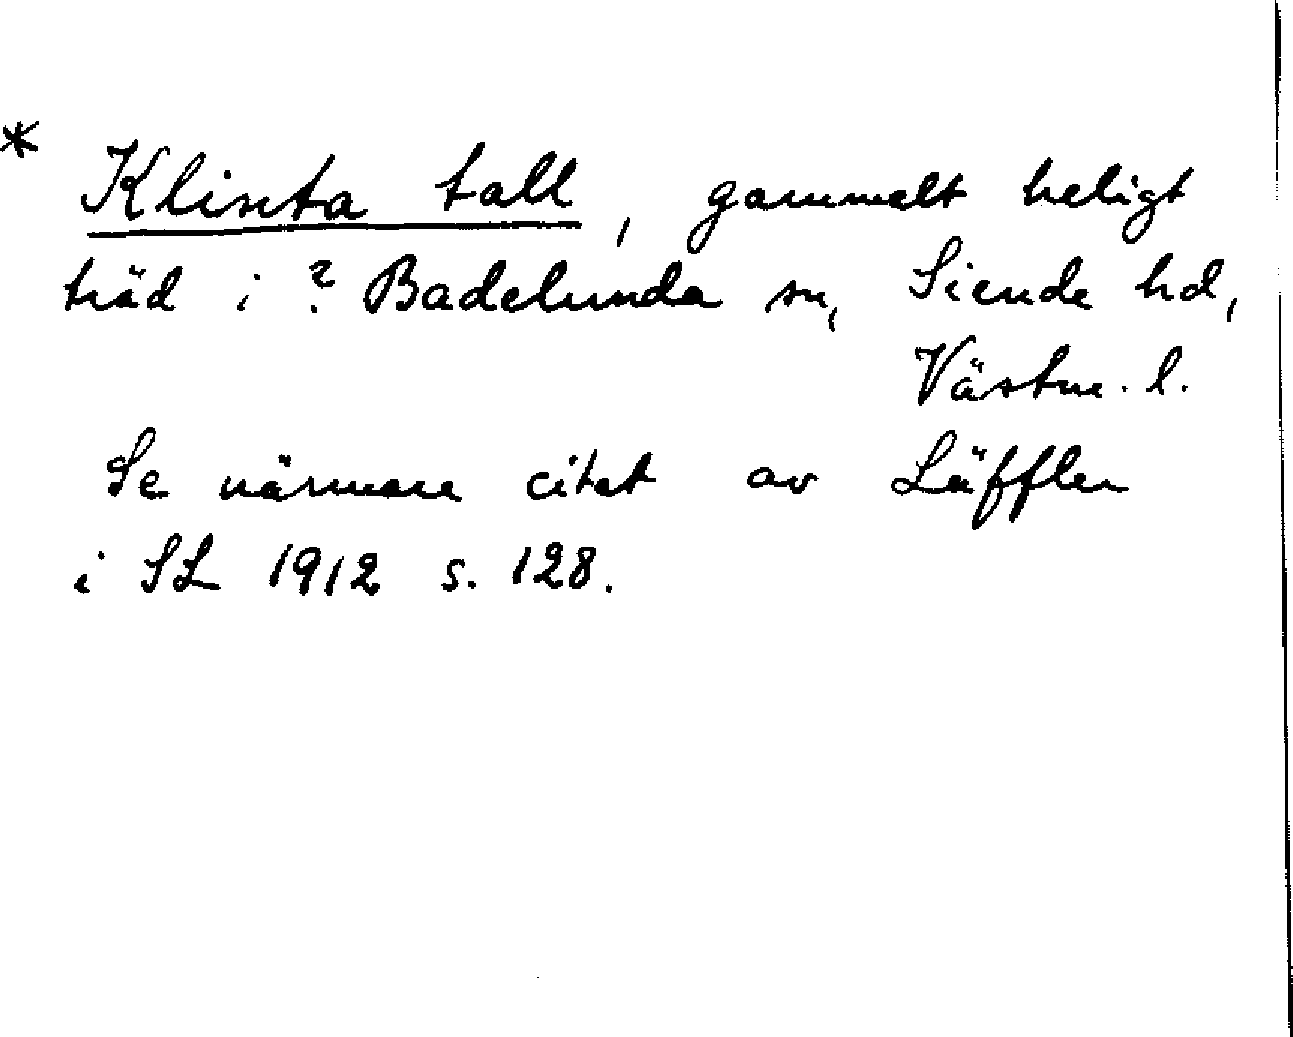 * Klinta tall, gammalt heligt
träd i ? Badelunda sn, Siende hd,
Västm. l.
Se närmare citat av Läffler
i SL 1912 s. 128.